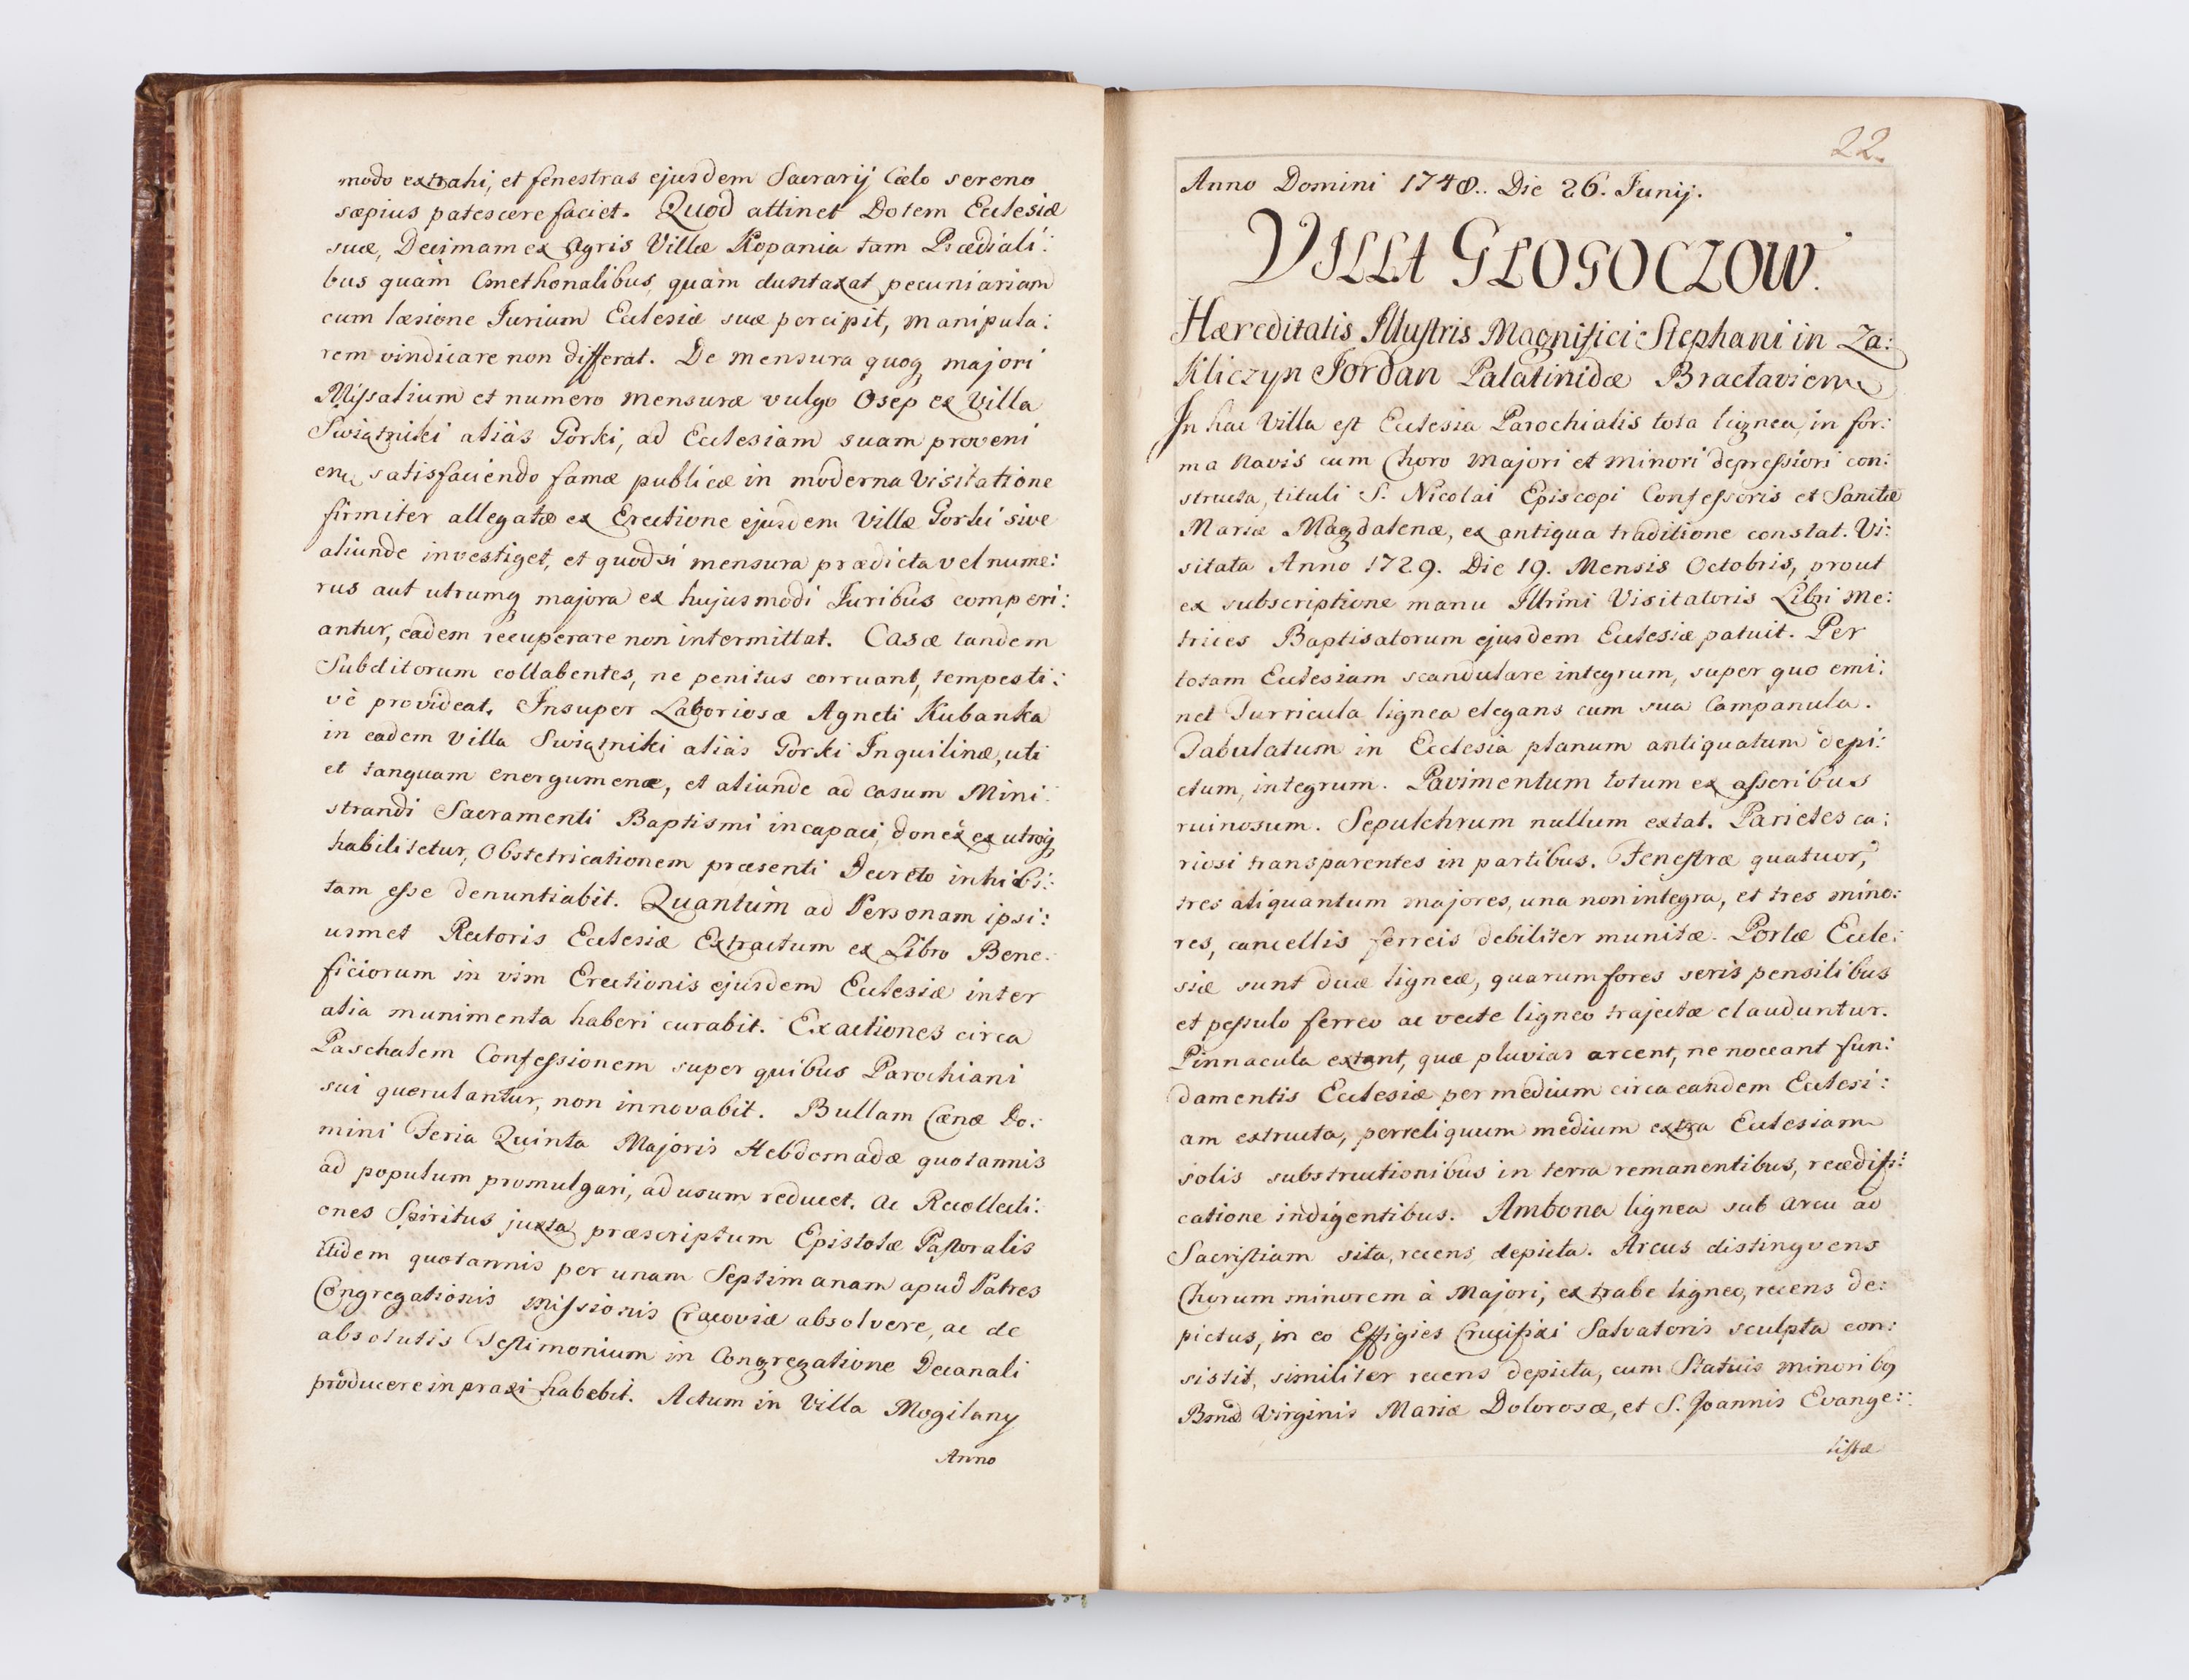 modo extrahi, et fenestras ejusdem Sacrarij Cælo sereno
sæpius patescere faciet. Quod attinet Dotem Ecclesiæ
suæ, Decimam ex Agris Villæ Kopania tam Prædiali:
bus quàm Cmethonalibus, quàm duntaxat pecuniariam
cum læsione Jurium Ecclesiæ suæ percipit, manipula:
rem vindicare non differat. De mensura quoq majori
Missalium et numero mensuræ vulgo Osep ex Villa
Swiątniki aliàs Gorki, ad Ecclesiam suam proveni
en, satisfaciendo famæ publicæ in moderna Visitatione
firmiter allegatæ ex Erectione ejusdem Villæ Gorki sive
aliunde investiget, et quodsi mensura prædicta vel nume:
rus aut utrumq majora ex hujusmodi Juribus comperi:
antur, eadem recuperare non intermittat. Casæ tandem
Subditorum collabentes, ne penitus corruant, tempesti:
vè provideat. Insuper Laboriosæ Agneti Kubanka
in eadem Villa Swiątniki aliàs Gorki Inquilinæ, uti
et tanquam energumenæ, et aliunde ad casum Mini:
strandi Sacramenti Baptismi incapaci, donec ex utroq
habilitetur, Obstetricationem præsenti Decreto inhibi:
tam esse denuntiabit. Quantùm ad Personam ipsi:
usmet Rectoris Ecclesiæ Extractum ex Libro Bene:
ficiorum in vim Erectionis ejusdem Ecclesiæ inter
alia munimenta haberi curabit. Exactiones circa
Paschalem Confessionem super quibus Parochiani
sui querulantur, non innovabit. Bullam Cænæ Do:
mini Feria Quinta Majoris Hebdomadæ quotannis
ad populum promulgari, ad usum reducet. ac Recollecti:
ones Spiritus juxta præscriptum Epistolæ Pastoralis
itidem quotannis per unam Septimanam apud Patres
Congregationis Missionis Cracoviæ absolvere, ac de
absolutis Testimonium in Congregatione Decanali
producere in praxi habebit. Actum in Villa Mogilany
Anno
22.
Anno Domini 1748.. Die 26. Junij.
VILLA GŁOGOCZOW.
Hæreditatis Illustris Magnifici Stephani in Za:
kliczyn Jordan Palatinidæ Braclavien
In hac Villa est Ecclesia Parochialis tota lignea, in for:
ma Navis cum Choro majori et minori depressiori con:
structa, tituli S. Nicolai Episcopi Confessoris et Sanctæ
Mariæ Magdalenæ, ex antiqua traditione constat. Vi:
sitata Anno 1729. Die 19. Mensis Octobris, prout
ex subscriptione manu Illrmi Visitatoris Libri Me:
trices Baptisatorum ejusdem Ecclesiæ patuit. Per
totam Ecclesiam scandulare integrum, super quo emi:
net Turricula lignea elegans cum sua Campanula.
Tabulatum in Ecclesia planum antiquatum depi:
ctum, integrum. Pavimentum totum ex asseribus
ruinosum. Sepulchrum nullum extat. Parietes ca:
riosi transparentes in partibus. Fenestræ quatuor,
tres aliquantum majores, una non integra, et tres mino:
res, cancellis ferreis debiliter munitæ. Portæ Eccle:
siæ sunt duæ ligneæ, quarum fores seris pensilibus
et pessulo ferreo ac vecte ligneo trajectæ clauduntur.
Pinnacula extant, quæ pluvias arcent, ne noceant fun:
damentis Ecclesiæ per medium circa eandem Ecclesi:
am extructa, per reliquum medium extra Ecclesiam
solis substructionibus in terra remanentibus, reædifi:
catione indigentibus. Ambona lignea sub arcu ad
Sacristiam sita, recens depicta. Arcus distingvens
Chorum minorem à Majori, ex trabe ligneo, recens de:
pictus, in eo Effigies Crucifixi Salvatoris sculpta con:
sistit, similiter recens depicta, cum Statuis minoribq
Bmæ Virginis Mariæ Dolorosæ, et S. Joannis Evange:
listæ